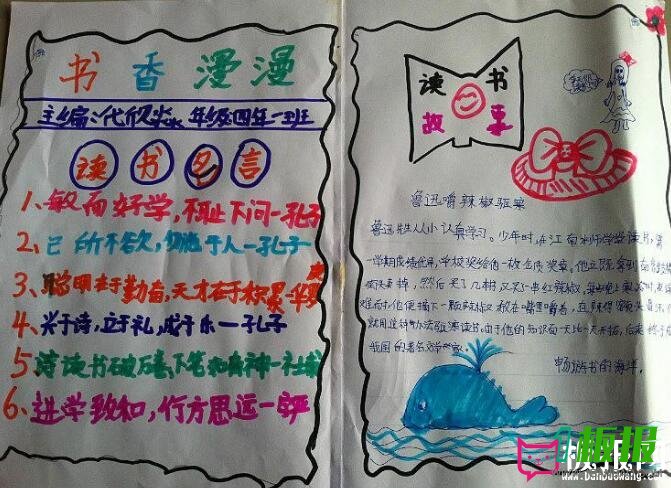 书香漫漫
主编:代欣尖 年级:四年一班
读书名言
1、敏而好学,不耻下问一孔子
2、己所不欲,勿施于人一孔子
3、聪明在于勤奋,天才在于积累一华
4、兴于诗,立于礼,成于乐一孔子
5 读书破万卷,下笔如有神一杜甫
6、进学致和,行方思远一
读书
故事
鲁迅嚼辣椒驱寒
鲁迅先生从小认真学习。少年时,在江南水师学堂读书,第
一学期成绩优异,学校奖给他一枚金质奖章。他立即拿到南京鼓楼
街头卖掉,然后买了几本书,又买了一串红辣椒。每当晚上寒冷时,夜读
难耐,他便摘下一颗辣椒,放在嘴里嚼着,直辣得额头冒汗。他
就用这种办法驱寒读书。由于他的知识面一天比一天开拓,后来终于成
我国的著名文学家。
畅游书的海洋。
板报
www.banbaowang.com